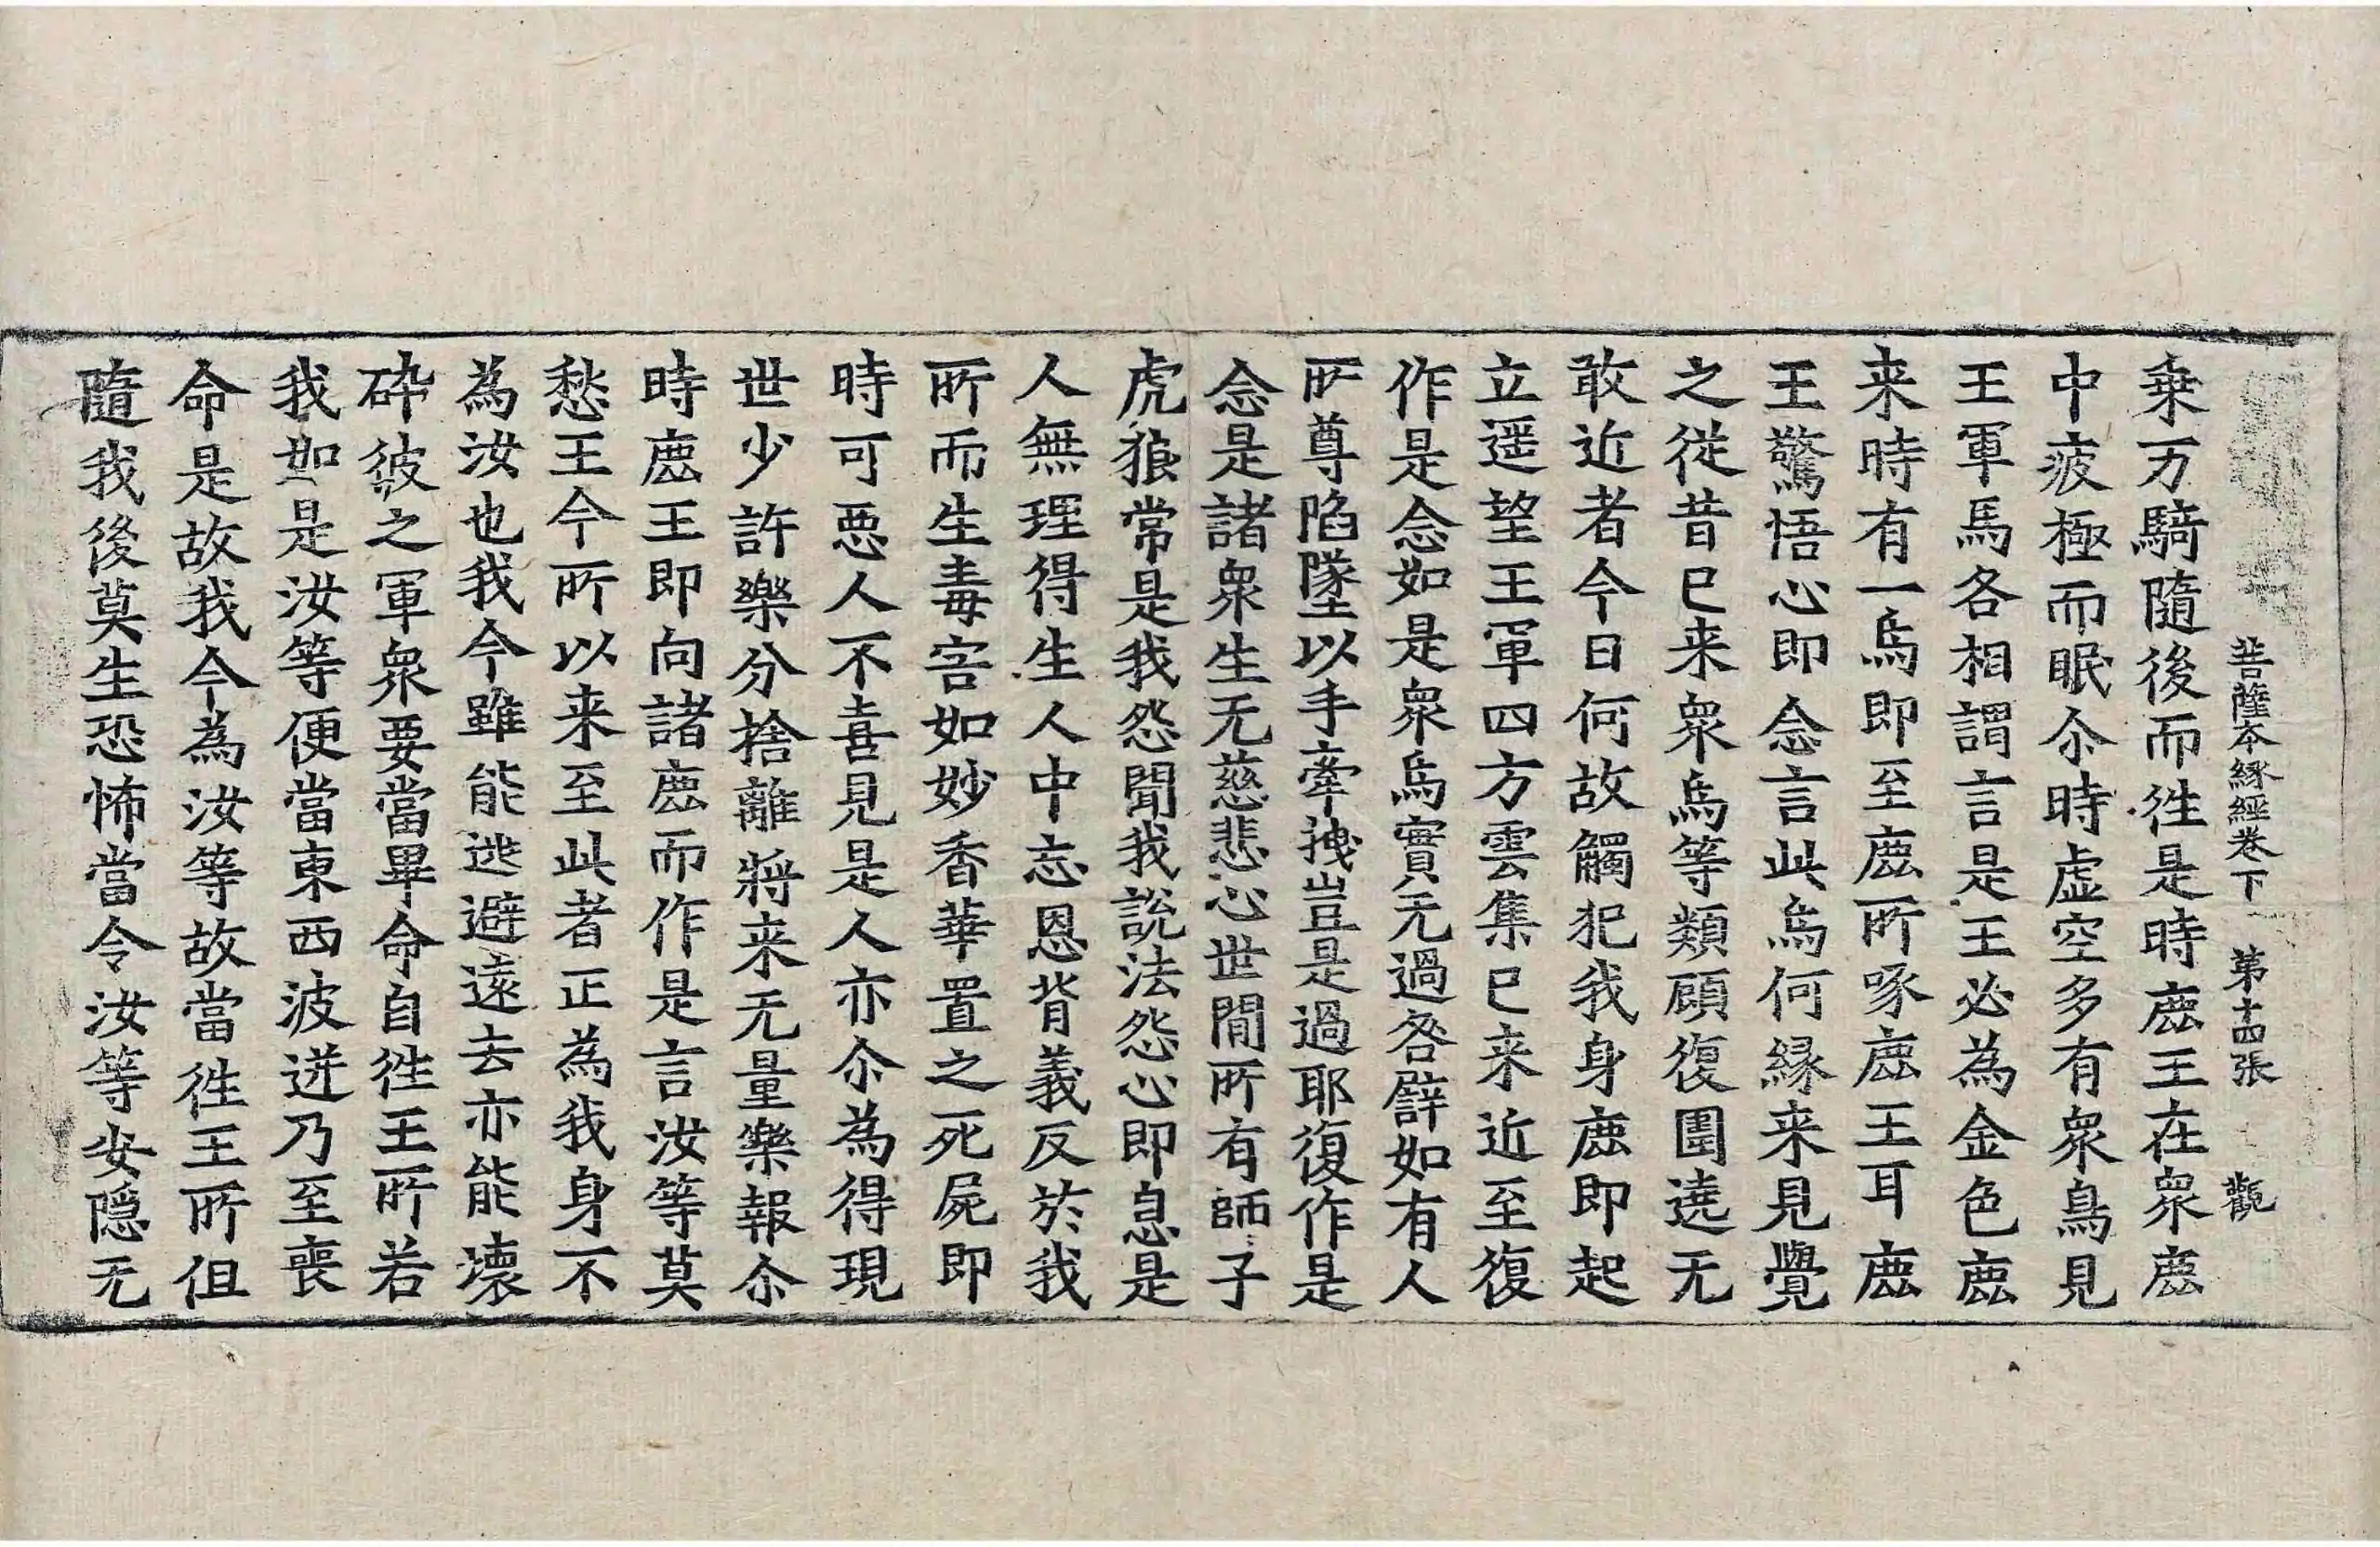 菩薩本縁經卷下 第十四張 觀
乗万騎隨後而徃是時鹿王在衆鹿
中疲極而眠尒時虚空多有衆鳥見
王軍馬各相謂言是王必為金色鹿
来時有一烏即至鹿所啄鹿王耳鹿
王驚悟心即念言此烏何緣来見覺
之從昔已来衆烏等類顧復圍遶无
敢近者今日何故觸犯我身鹿即起
立遥望王軍四方雲集已来近至復
作是念如是衆烏實无過咎譬如有人
所尊陷墜以手牽拽豈是過耶復作是
念是諸衆生无慈悲心世間所有師子
虎狼常是我怨聞我說法怨心即息是
人無理得生人中忘恩背義反於我
所而生毒害如妙香華置之死屍即
時可惡人不喜見是人亦尒為得現
世少許樂分捨離將来无量樂報尒
時鹿王即向諸鹿而作是言汝等莫
愁王今所以来至此者正為我身不
為汝也我今雖能逃避遠去亦能壞
碎彼之軍衆要當畢命自徃王所若
我如是汝等便當東西波迸乃至喪
命是故我今為汝等故當徃王所但
隨我後莫生恐怖當令汝等安隱无